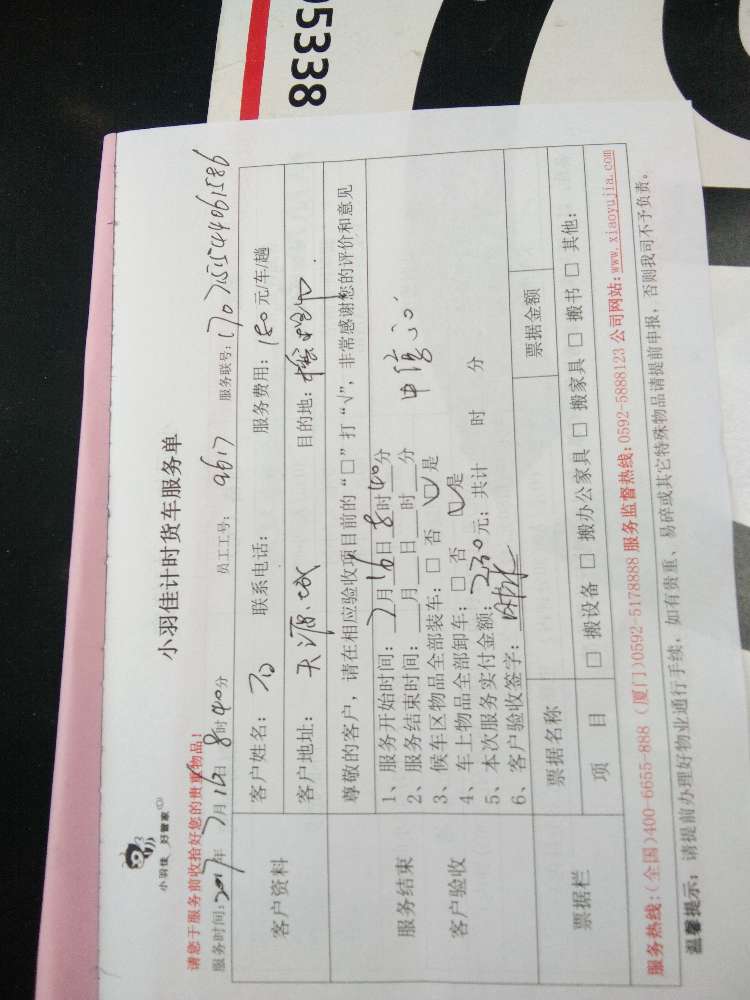 05338
小羽佳 好管家
小羽佳计时货车服务单
请您于服务前收拾好您的贵重物品!
服务时间: 2017年 7月 16日 8时 40分 员工工号: 9617 服务联号: 17071515544061586
客户资料
客户姓名: 石 联系电话: 服务费用: 180元/车/趟
客户地址: 天源 目的地:
尊敬的客户,请在相应验收项目前的“□”打“√”,非常感谢您的评价和意见
服务结束
客户验收
1、服务开始时间: 7月16日8时40分
2、服务结束时间: 月 日 时 分
3、候车区物品全部装车: □ 否 □ 是
4、车上物品全部卸车: □ 否 □ 是
5、本次服务实付金额: 230元; 共计 时 分
6、客户验收签字:
票据栏
票据名称 票据金额
项 目 □ 搬设备 □ 搬办公家具 □ 搬家具 □ 搬书 □ 其他:
服务热线:(全国)400-6655-888 (厦门)0592-5178888 服务监督热线:0592-5888123 公司网站:www.xiaoyujia.com
温馨提示: 请提前办理好物业通行手续,如有贵重、易碎或其它特殊物品请提前申报,否则我司不予负责。